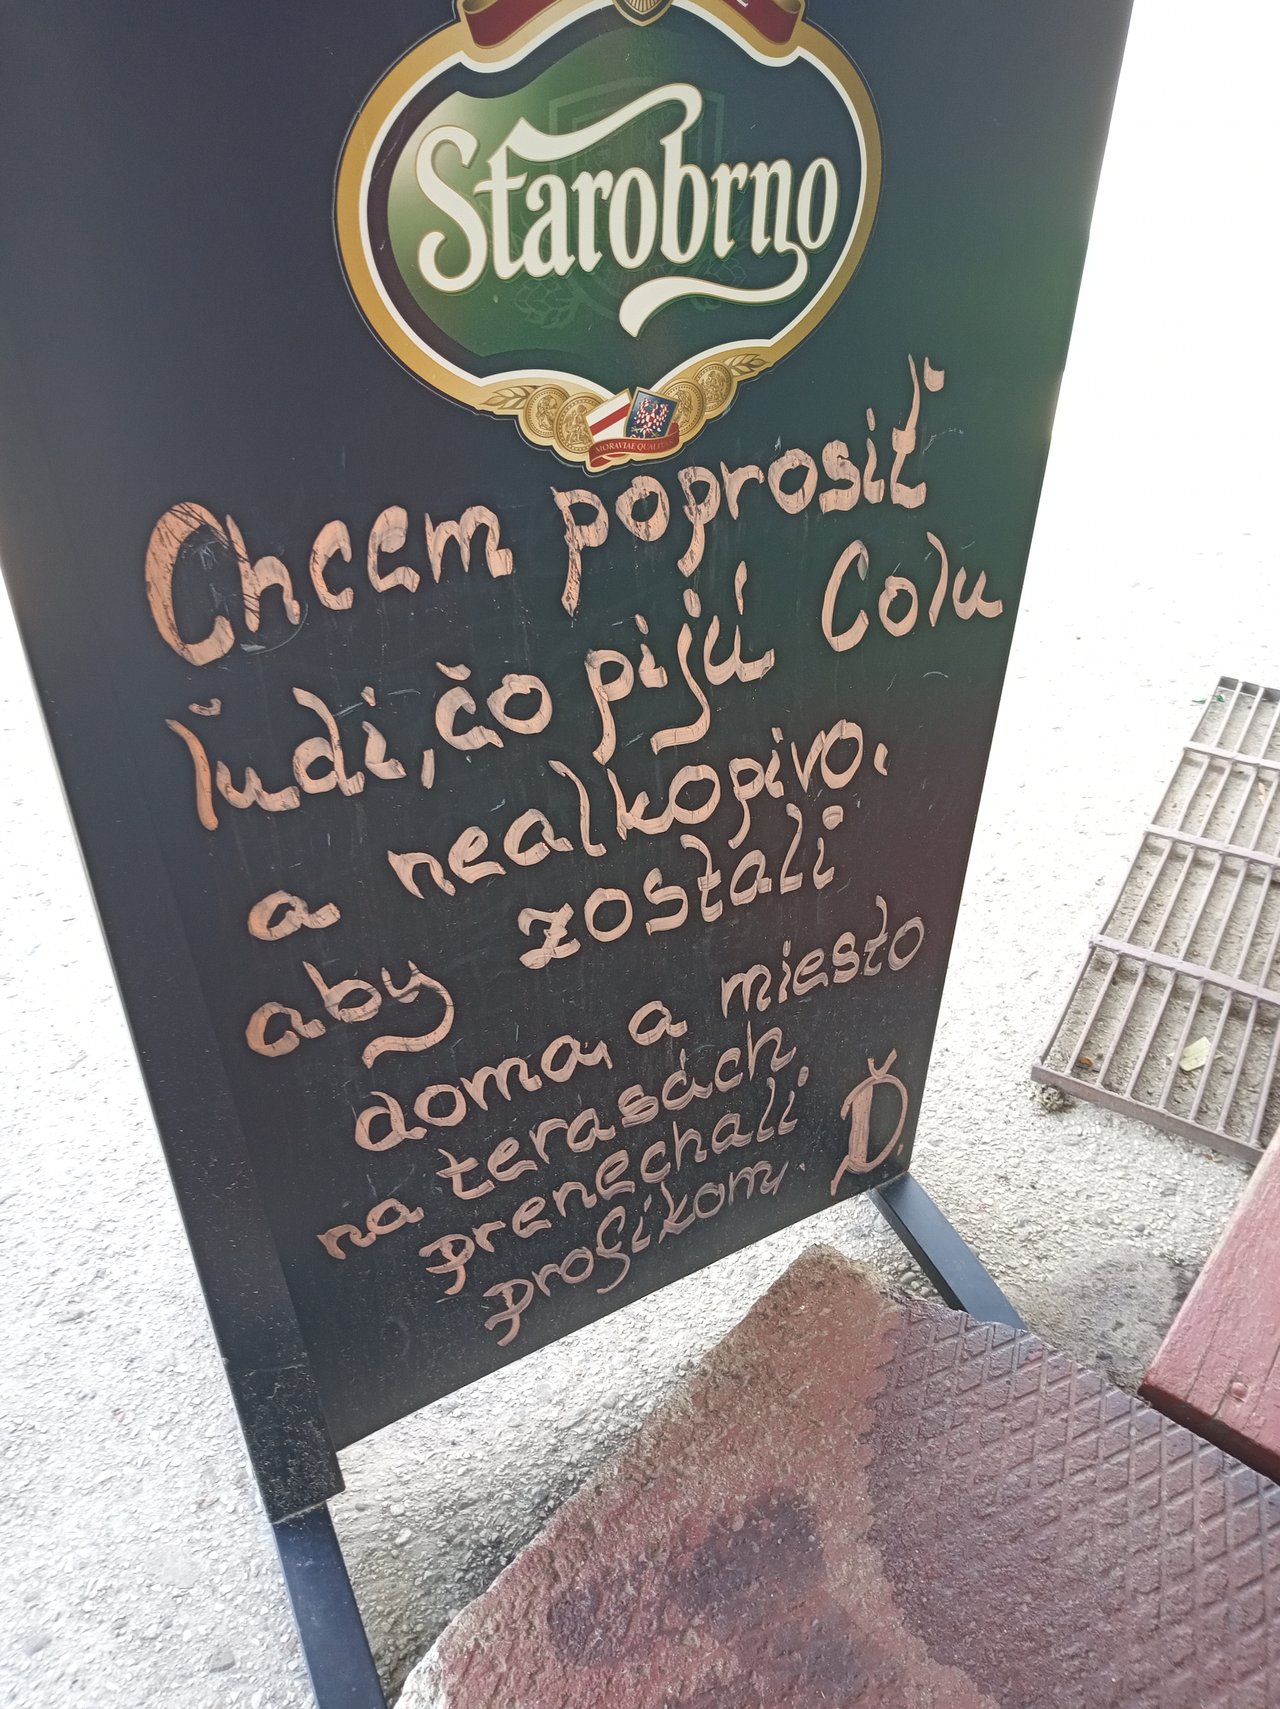 Starobrno
MORAVIAE QUALITAS
Chcem poprosiť
ľudi, čo pijú Colu
a nealkopivo,
aby zostali
doma, a miesto
na terasách
prenechali
profikom. Ď.